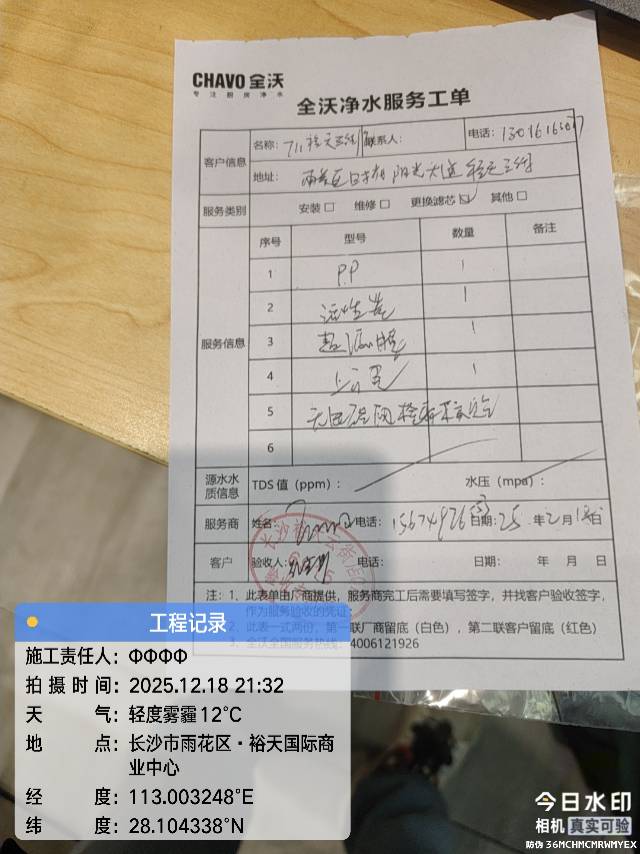 CHAVO 全沃
专注厨房净水
全沃净水服务工单
客户信息
名称：711裕天国际
联系人：
电话：
地址：雨花区 阳光大道 裕天国际
服务类别
安装□ 维修□ 更换滤芯☑ 其他□
服务信息
序号 型号 数量 备注
1 P.P 1
2 活性炭 1
3 超滤膜 1
4 1
5
6
源水水质信息
TDS 值（ppm）： 水压（mpa）：
服务商
姓名： 电话： 日期：25.年2月18日
客户
验收人： 电话： 日期： 年 月 日
注：1、此表单由厂商提供，服务商完工后需要填写签字，并找客户验收签字，
作为服务验收的凭证；
2、此表一式两份，第一联厂商留底（白色），第二联客户留底（红色）
3、全沃全国服务热线：4006121926
工程记录
施工责任人：ФФФФ
拍摄时间：2025.12.18 21:32
天气：轻度雾霾 12℃
地点：长沙市雨花区·裕天国际商
业中心
经度：113.003248°E
纬度：28.104338°N
今日水印
相机 真实可验
防伪 36MCHMCMRWMYEX